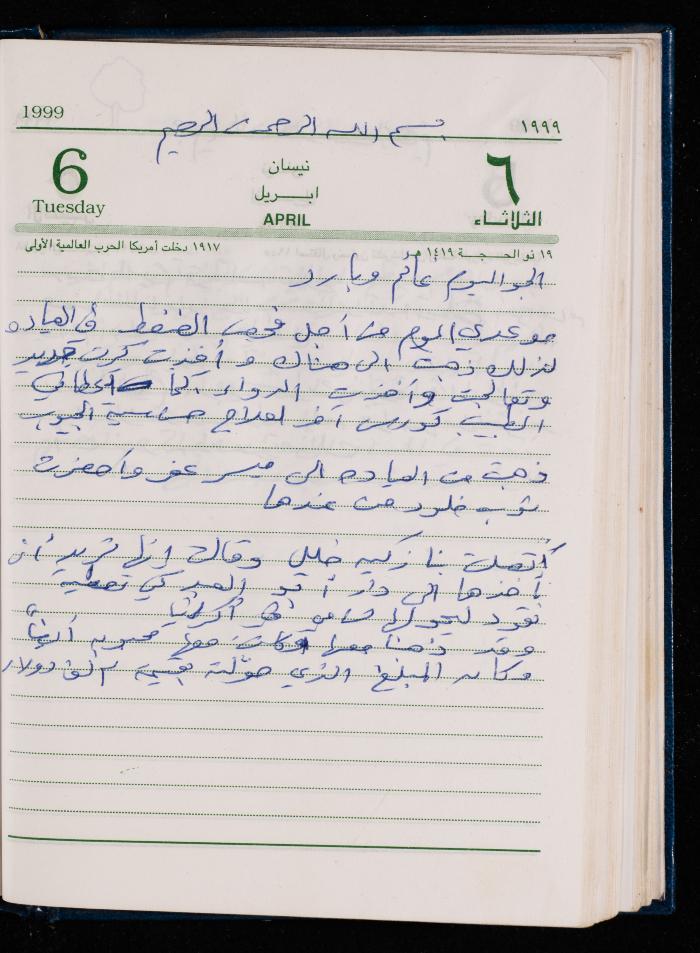 1999
بسم الله الرحمن الرحيم
١٩٩٩
6
Tuesday
نيسان
ابـــريل
APRIL
٦
الثلاثـاء
١٩ ذو الحـجـــة ١٤١٩ هـ
١٩١٧ دخلت أمريكا الحرب العالمية الأولى
الجو اليوم غائم وبارد
موعدي اليوم من أجل فحص الضغط في العياده
لذلك ذهبت الى هناك و أخذت كرت جديد
وتعالجت وأخذت الدواء كما أعطاني
الطبيب كورس آخر لعلاج حساسية الجيوب
ذهبت من العياده الى ميسر عفو وأحضرت
ثوب خلود من عندها
أتصلت بنا زكيه خليل وقالت إنها تريد أن
نأخذها الى دار أبو العبد كي تعطيه
نقود ليحولها في أكرانيا
وقد ذهبنا معها وكانت معها محبوبه أيضاً
وكان المبلغ الذي حولته بقيمة ألف دولار